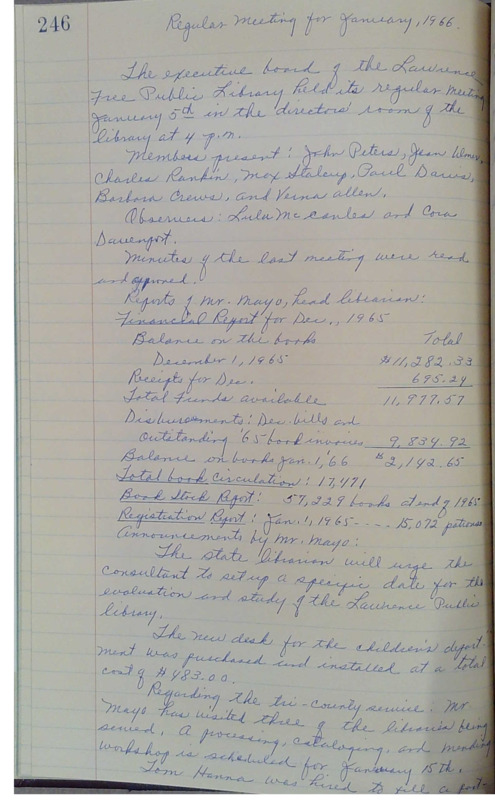 246
Regular Meeting for January, 1966.
The executive board of the Lawrence
Free Public Library held its regular meeting
January 5th in the directors' room of the
library at 4 p.m.
Members present: John Peters, Jean
Charles Rankin, Max Stalcup, Paul Davis,
Barbara Crews, and Verna Allen.
Observers: Lula McCanles and Cora
Davenport.
Minutes of the last meeting were read
and approved.
Reports of Mr. Mayo, head librarian:
Financial Report for Dec., 1965
Balance on the books Total
December 1, 1965 $11,282.33
Receipts for Dec. 695.24
Total Funds available 11,977.57
Disbursements: Dec. bills and
outstanding '65 book invoices 9,834.92
Balance on books Jan. 1, '66 $2,142.65
Total book circulation: 17,471
Book Stock Report: 57,229 books at end of 1965
Registration Report: Jan. 1, 1965 - - - - 15,072 patrons
Announcements by Mr. Mayo:
The state librarian will urge the
consultant to set up a specific date for the
evaluation and study of the Lawrence Public
library.
The new desk for the children's depart-
ment was purchased and installed at a total
cost of $483.00.
Regarding the tri-county service. Mr
Mayo has visited three of the libraries being
served. A processing, cataloging, and mending
workshop is scheduled for January 15th.
Tom Hanna was hired to fill a part-